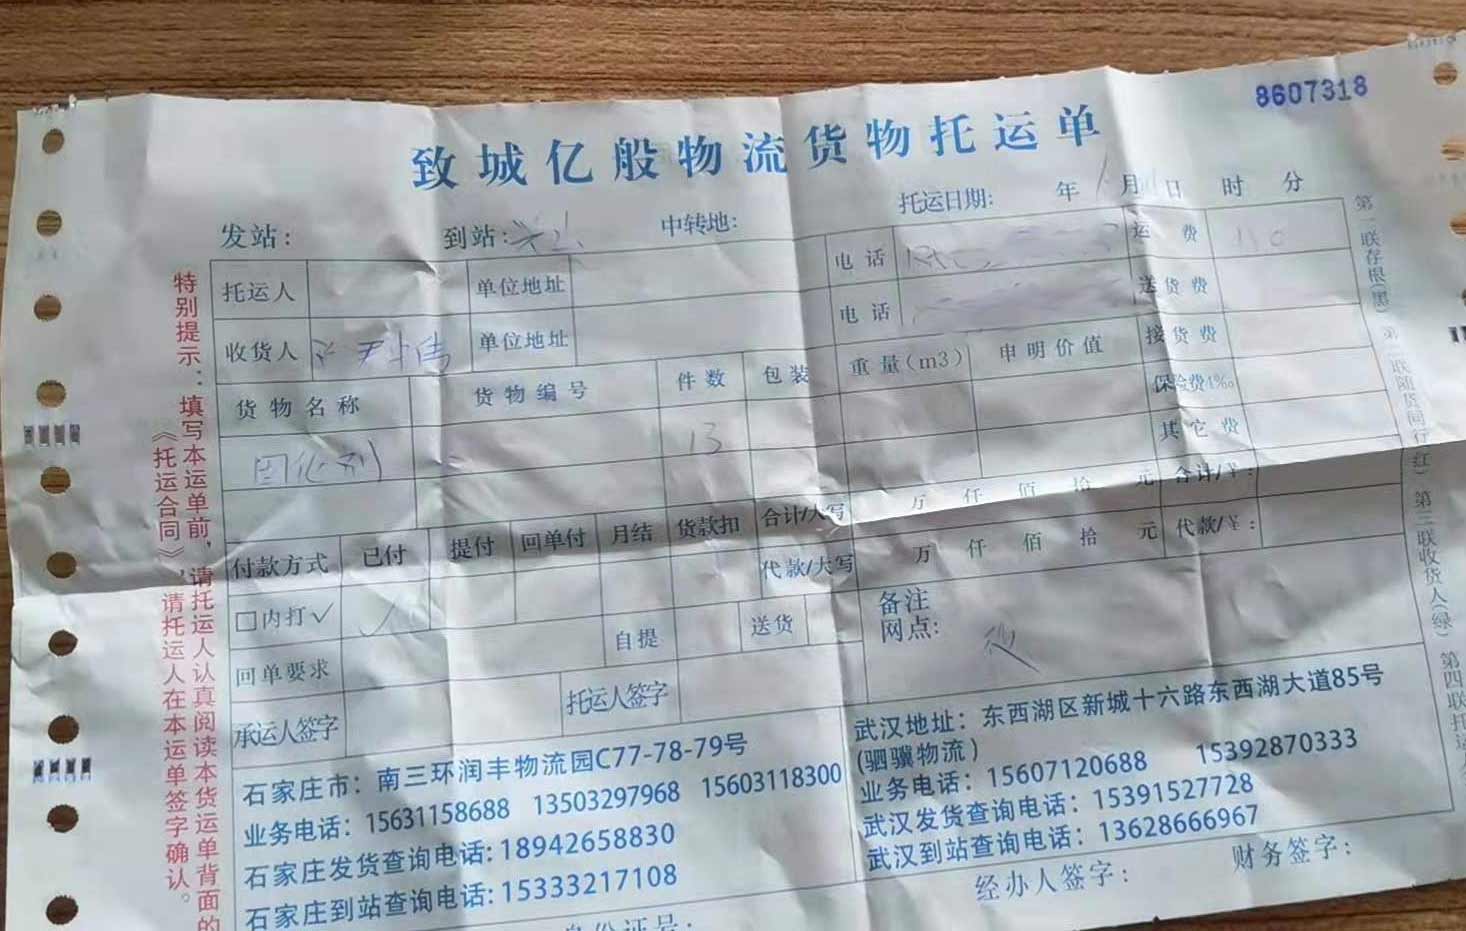 8607318
致城亿般物流货物托运单
托运日期: 年 月 日 时 分
发站: 到站: 中转地:
托运人 单位地址 电话 运费
收货人 单位地址 电话 送货费
货物名称 货物编号 件数 包装 重量(m3) 申明价值 接货费
保险费1‰
固化剂 13 其它费
合计/大写 万 仟 佰 拾 元 合计/¥:
付款方式 已付 提付 回单付 月结 货款扣 代款/大写 万 仟 佰 拾 元 代款/¥:
口内打✓
回单要求 自提 送货 备注
网点:
承运人签字 托运人签字
石家庄市: 南三环润丰物流园C77-78-79号
业务电话: 15631158688 13503297968 15603118300
石家庄发货查询电话: 18942658830
石家庄到站查询电话: 15333217108
武汉地址: 东西湖区新城十六路东西湖大道85号
(驷骥物流)
业务电话: 15607120688 15392870333
武汉发货查询电话: 15391527728
武汉到站查询电话: 13628666967
经办人签字: 财务签字:
身份证号:
特别提示: 填写本运单前,请托运人认真阅读本货运单背面的
《托运合同》,请托运人在本运单签字确认。
第一联存根(黑) 第二联随货同行(红) 第三联收货人(绿) 第四联托运人